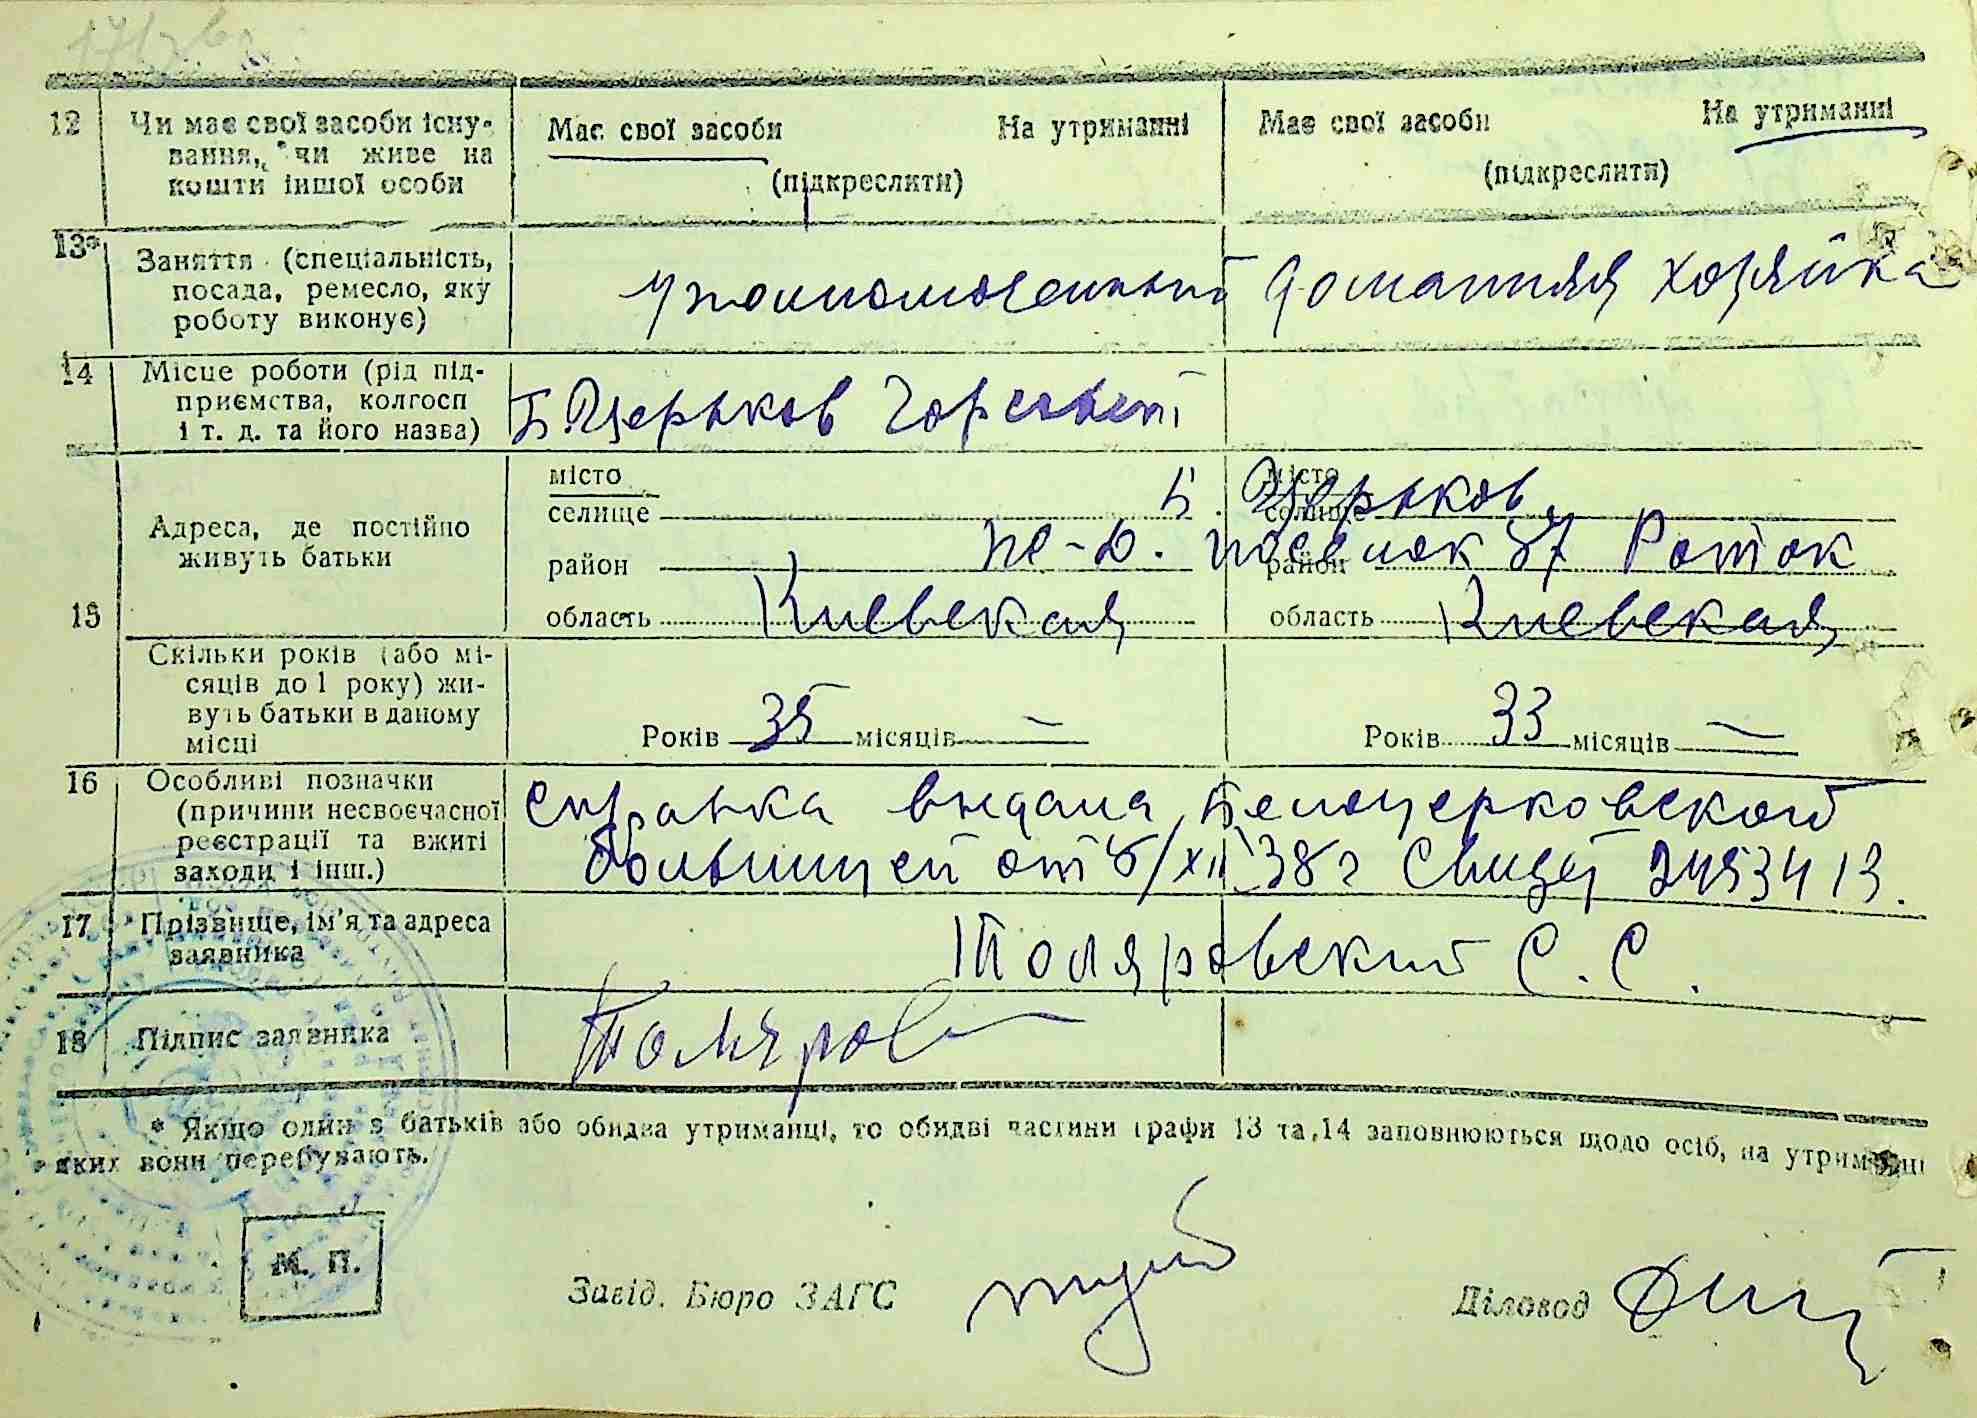 12 Чи має свої засоби існу-
вання, чи живе на
кошти іншої особи
Має свої засоби На утриманні
(підкреслити)
Має свої засоби На утриманні
(підкреслити)
13* Заняття (спеціальність,
посада, ремесло, яку
роботу виконує)
уполномоченный
домашняя хозяйка
14 Місце роботи (рід під-
приємства, колгосп
і т. д. та його назва)
Б. Церьков Горсовет
15 Адреса, де постійно
живуть батьки
місто
селище
район
область Киевская
місто
селище
район
область Киевская
Б. Церьков,
поселок 87 Роток
Скільки років (або мі-
сяців до 1 року) жи-
вуть батьки в даному
місці
Років 35 місяців —
Років 33 місяців —
16 Особливі позначки
(причини несвоєчасної
реєстрації та вжиті
заходи і інш.)
справка выдана Белоцерковской
больницей от 8/XII 38 г 2453413.
17 Прізвище, ім'я та адреса
заявника
Толяровский С. С.
18 Підпис заявника
Толяров
* Якщо один з батьків або обидва утриманці, то обидві частини графи 13 та 14 заповнюються щодо осіб, на утриманні
яких вони перебувають.
М. П.
Завід. Бюро ЗАГС
Діловод